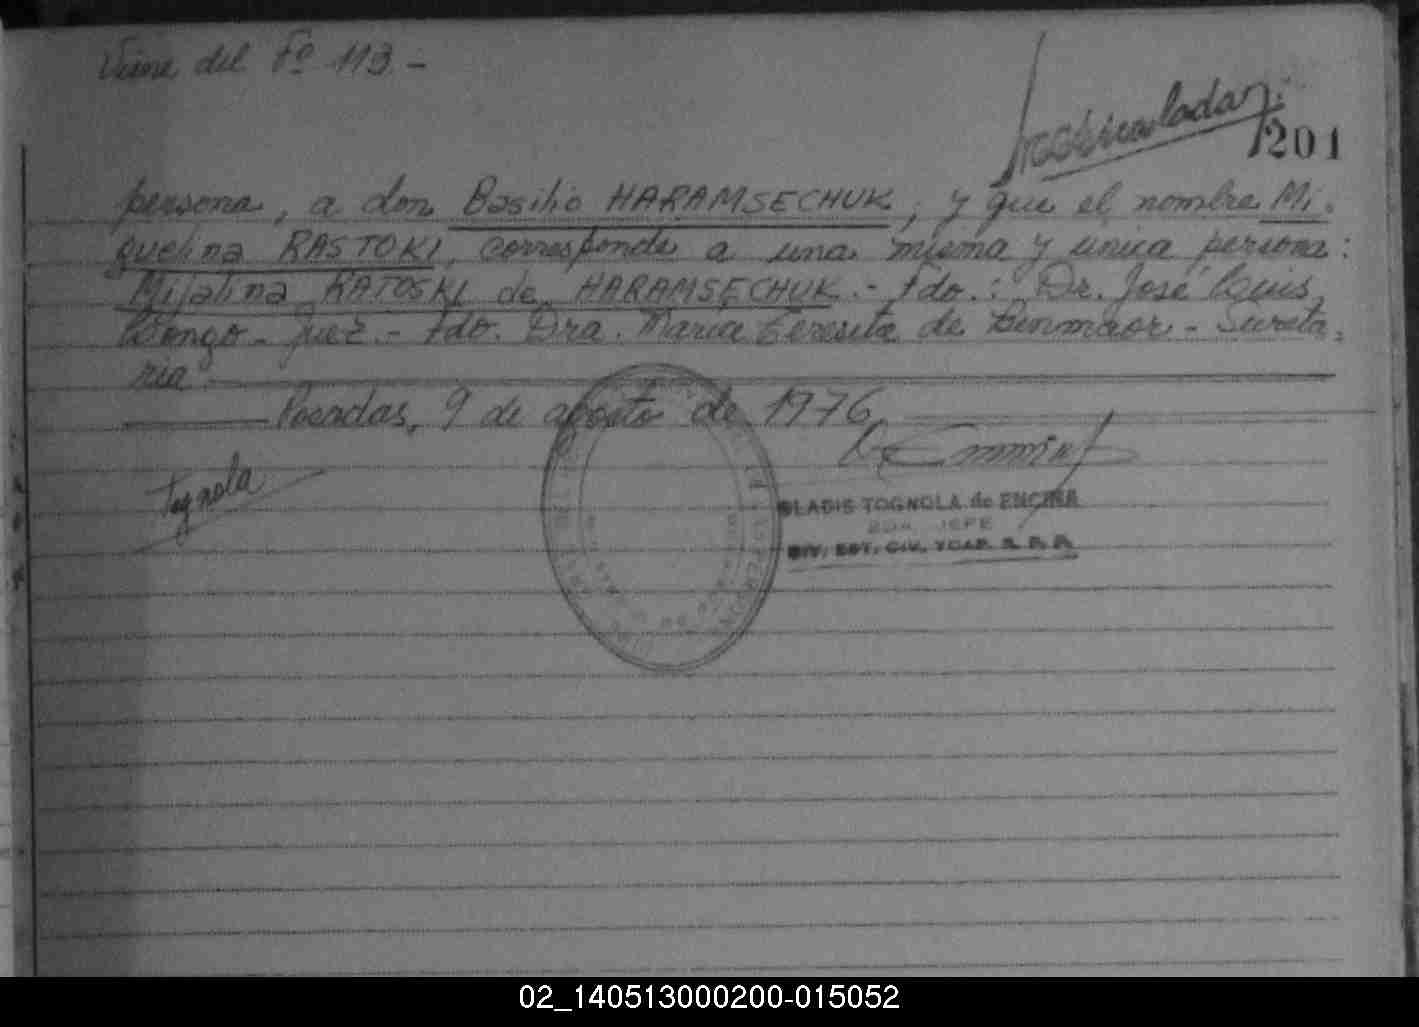 Viene del Fº 113.-
201
persona, a don Basilio HARAMSECHUK, y que el nombre Mi-
quelina RASTOKI, corresponde a una misma y única persona:
Mijalina RATOSKI de HARAMSECHUK.- Fdo.: Dr. José Luis
Juez.- Fdo. Dra. María Teresita de - Secreta-
ria.-
Posadas, 9 de agosto de 1976
Tognola
GLADIS TOGNOLA de ENCINA
JEFE
DIV. EST. CIV. YCAP. R. P. P.
02_140513000200-015052